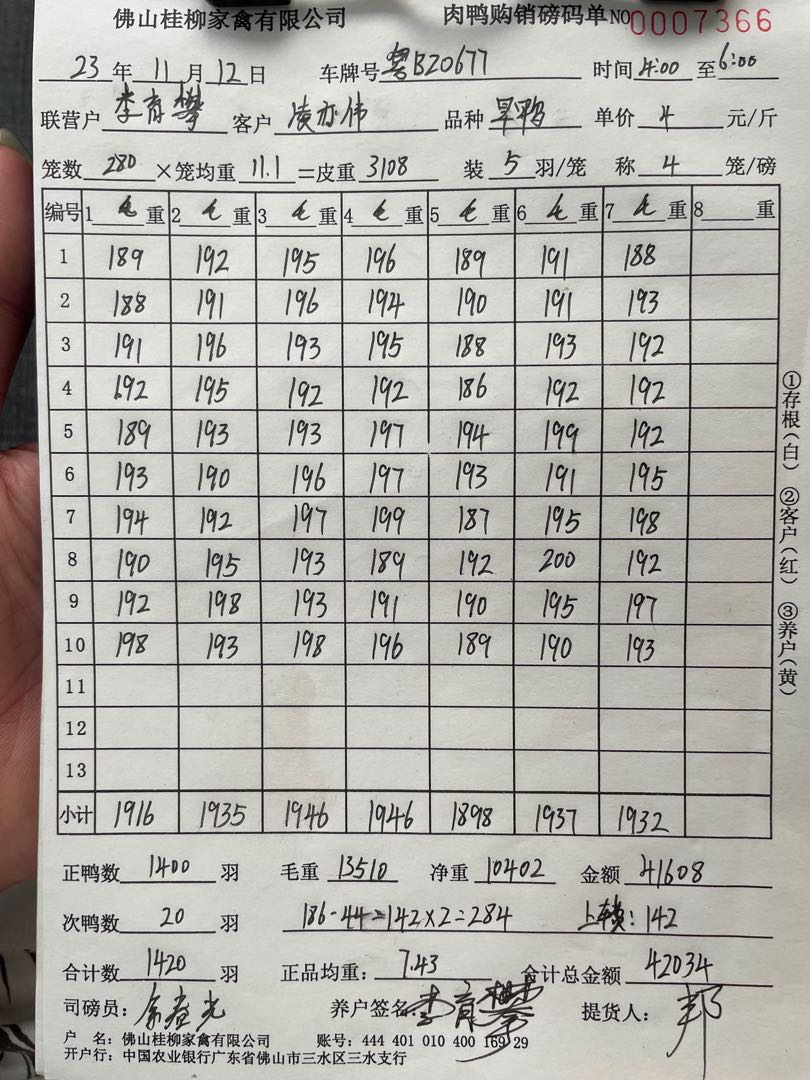 佛山桂柳家禽有限公司 肉鸭购销磅码单NO 0007366
23年11月12日 车牌号 粤B20677 时间 4:00 至 6:00
联营户 李育攀 客户 凌亦伟 品种 旱鸭 单价 4 元/斤
笼数 280 ×笼均重 11.1 =皮重 3108 装 5 羽/笼 称 4 笼/磅
编号 1 毛 重 2 毛 重 3 毛 重 4 毛 重 5 毛 重 6 毛 重 7 毛 重 8 重
1 189 192 195 196 189 191 188
2 188 191 196 194 190 191 193
3 191 196 193 195 188 193 192
4 192 195 192 192 186 192 192
5 189 193 193 197 194 199 192
6 193 190 196 197 193 191 195
7 194 192 197 199 187 195 198
8 190 195 193 189 192 200 192
9 192 198 193 191 190 195 197
10 198 193 198 196 189 190 193
11
12
13
小计 1916 1935 1946 1946 1898 1937 1932
正鸭数 1400 羽 毛重 13510 净重 10402 金额 41608
次鸭数 20 羽 186-44=142×2=284 上车费: 142
合计数 1420 羽 正品均重: 7.43 合计总金额 42034
司磅员: 养户签名: 李育攀 提货人: 邦
户 名: 佛山桂柳家禽有限公司 账号: 444 401 010 400 169 29
开户行: 中国农业银行广东省佛山市三水区三水支行
①存根(白) ②客户(红) ③养户(黄)